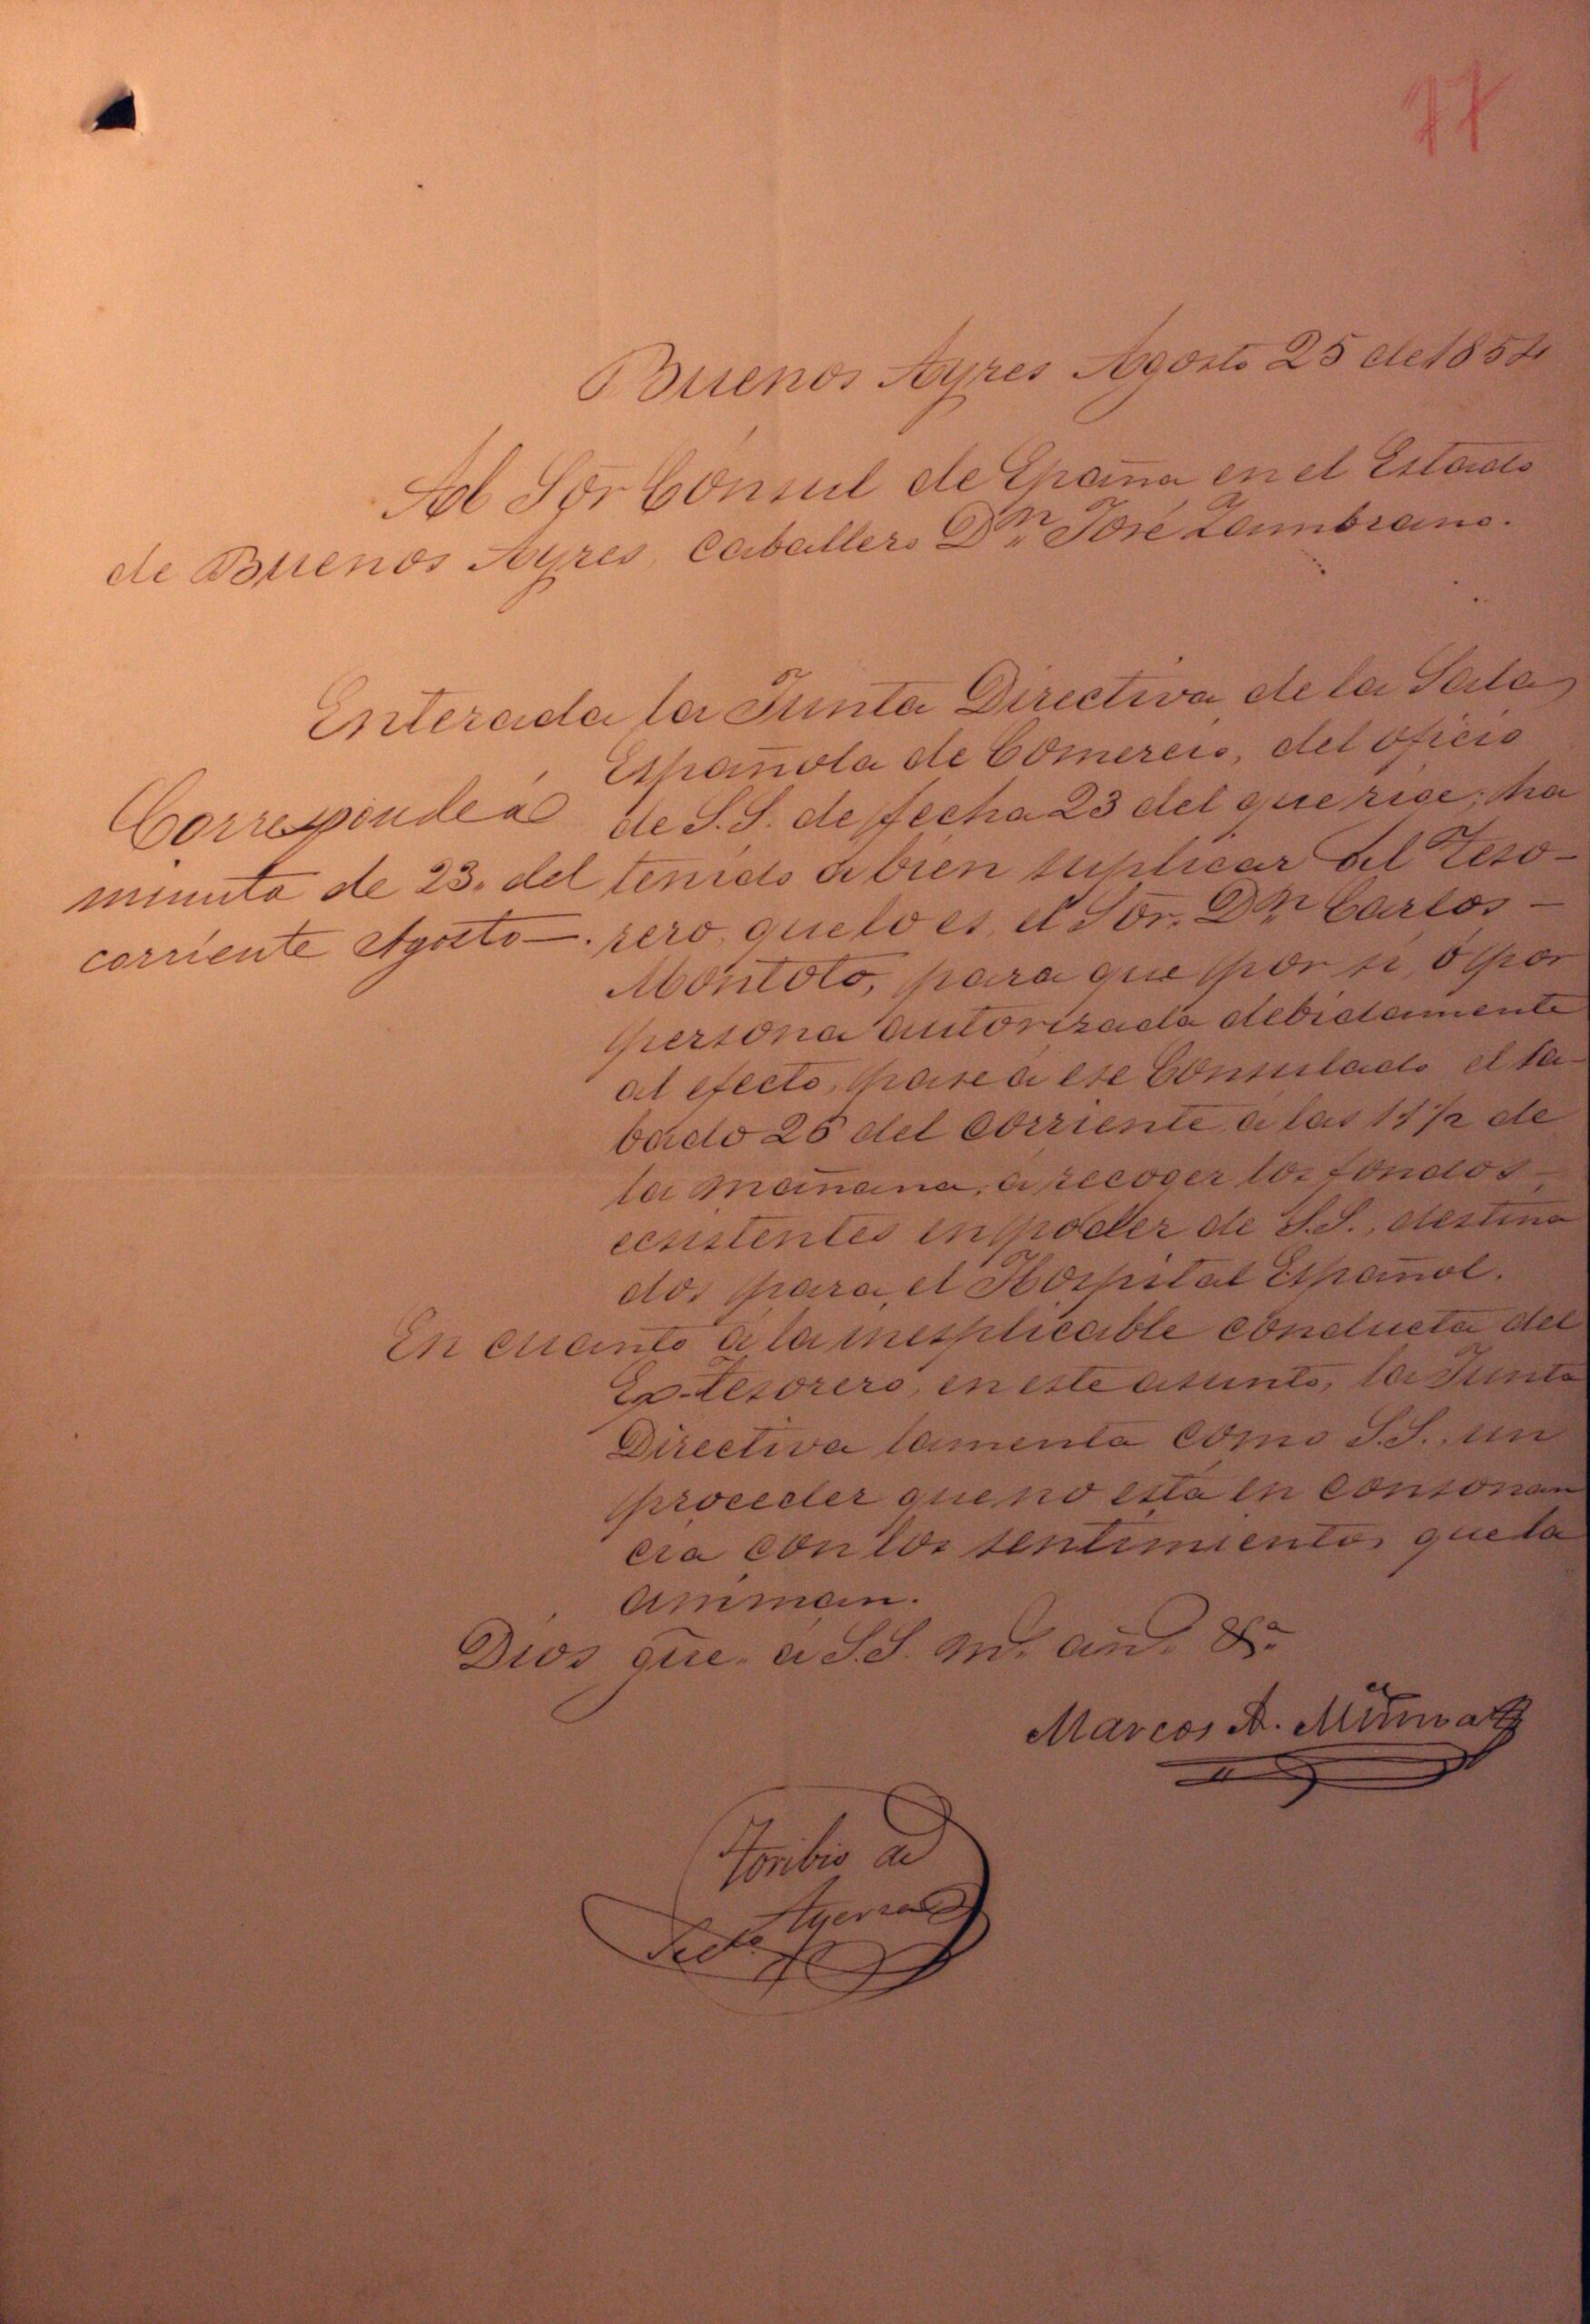 77
Buenos Ayres Agosto 25 de 1854
Al Sõr Cónsul de Epaña en el Estado
de Buenos Ayres, Caballero Dn. José Zambrano.
Enterada la Junta Directiva de la Sala
Española de Comercio, del oficio
de S.S. de fecha 23 del que rige; ha
tenido a bien suplicar al Teso-
rero, que lo es, el Sõr. Dn. Carlos -
Montoto, para que por si, ó por
persona autorizada debidamente
al efecto, pase á ese Consulado el sa-
bado 26 del corriente á las 11 1/2 de
la mañana, á recoger los fondos -
ecsistentes en poder de S.S., destina
dos para el Hospital Español.
En cuanto á la inesplicable conducta del
Ex-tesorero, en este asunto, la Junta
Directiva lamenta como S.S., un
proceder que no está en consonan
cia con los sentimientos que la
animan.
Dios gue. á S.S. ms. añs. &a.
Corresponde á
minuta de 23. del
corriente Agosto—.
Marcos A.
Toribio de
Ayerza
Secto.